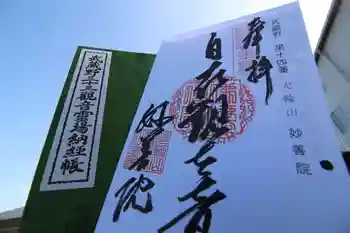 武蔵野三十三観音霊場納経帳
武蔵野 第十四番 光輪山 妙善院
奉拝
自在観世音
妙善院